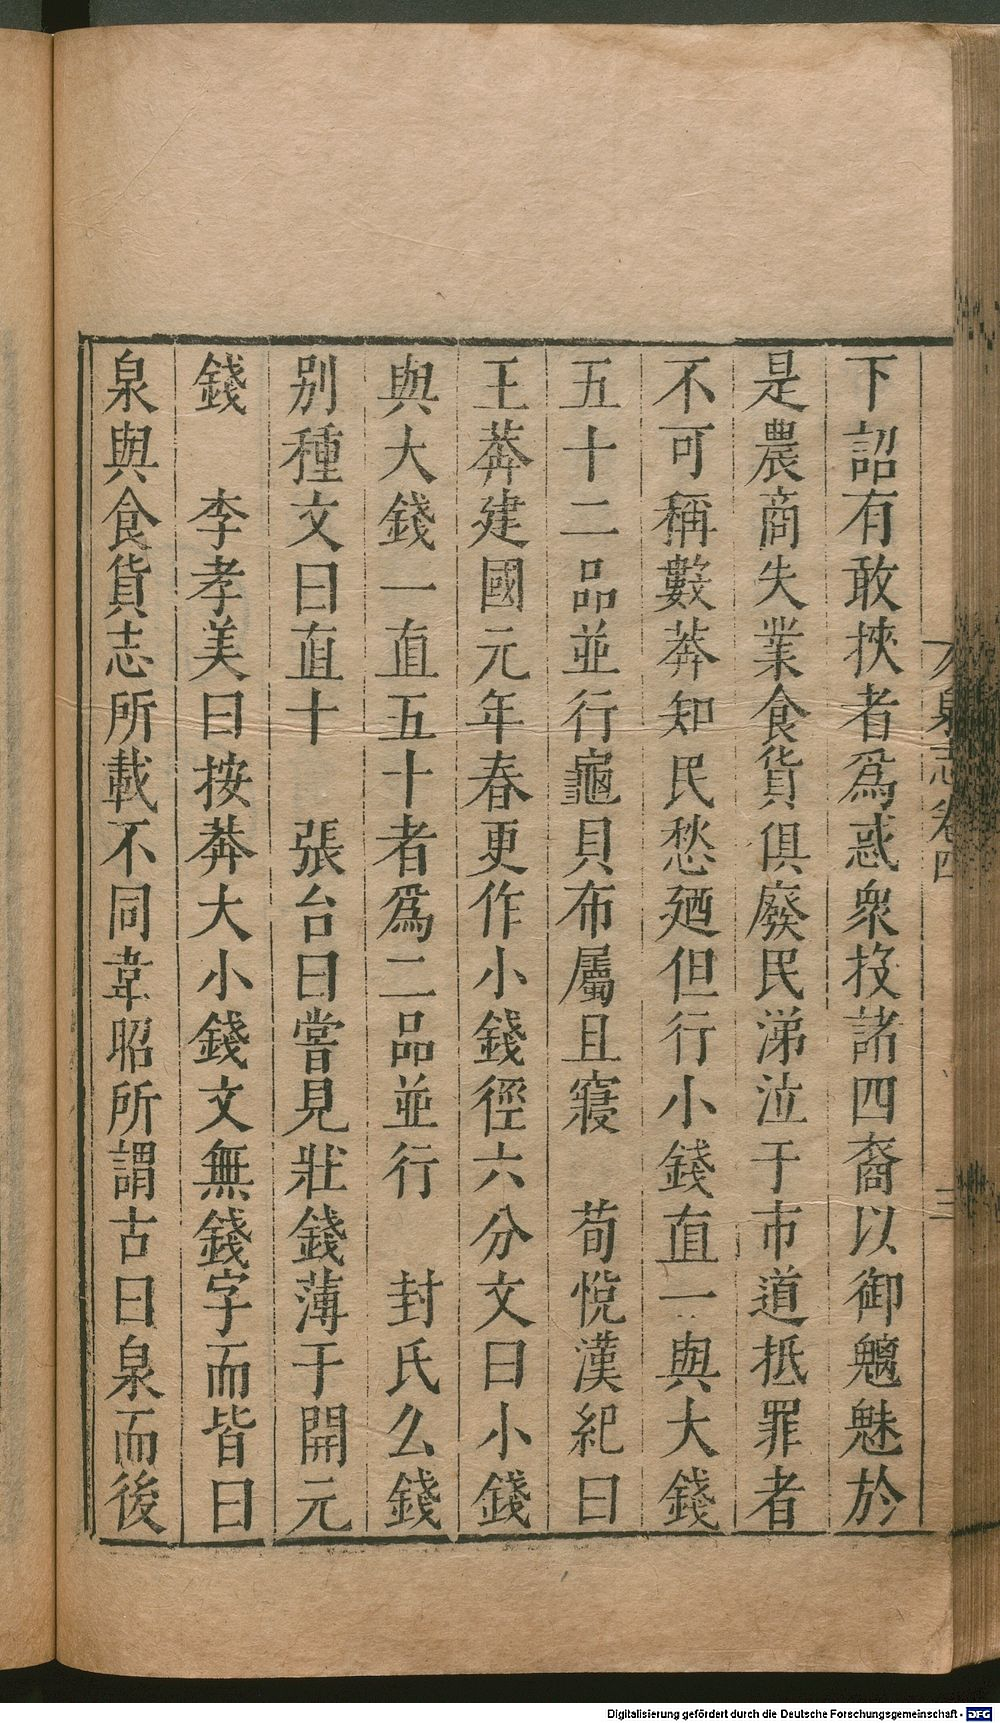 泉志卷四
三
下詔有敢挾者爲惑衆投諸四裔以御魑魅於
是農商失業食貨俱廢民涕泣于市道抵罪者
不可稱數莽知民愁廼但行小錢直一與大錢
五十二品並行龜貝布屬且寢　荀悅漢紀曰
王莽建國元年春更作小錢徑六分文曰小錢
與大錢一直五十者爲二品並行　封氏么錢
別種文曰直十　張台曰嘗見壯錢薄于開元
錢　李孝美曰按莽大小錢文無錢字而皆曰
泉與食貨志所載不同韋昭所謂古曰泉而後
Digitalisierung gefördert durch die Deutsche Forschungsgemeinschaft - DFG